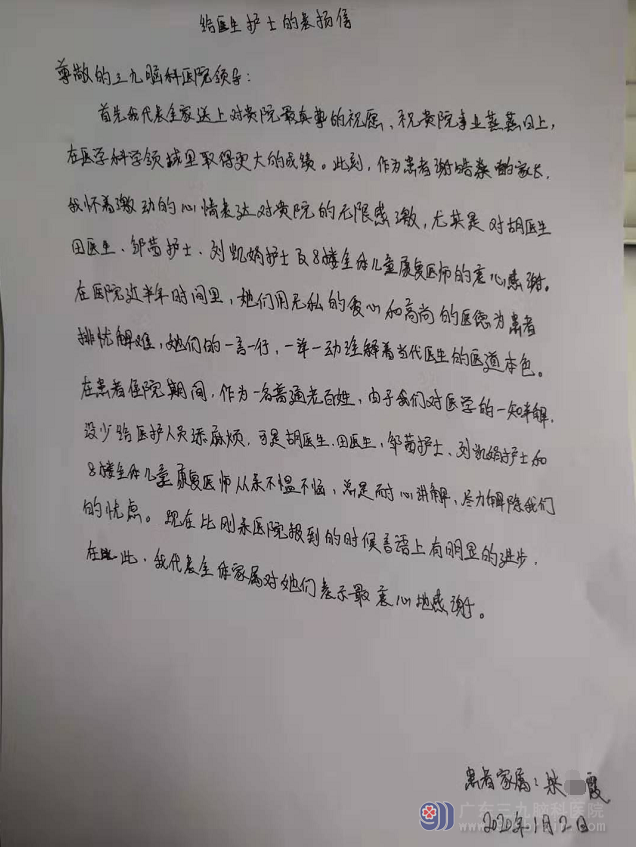 给医生护士的表扬信
尊敬的三九脑科医院领导：
首先我代表全家送上对贵院最真挚的祝愿、祝贵院事业蒸蒸日上，
在医学科学领域里取得更大的成绩。此刻，作为患者谢皓燊的家长，
我怀着激动的心情表达对贵院的无限感激，尤其是对胡医生
田医生、邹茜护士、刘凯娟护士及8楼全体儿童康复医师的衷心感谢。
在医院近半年时间里，她们用无私的爱心和高尚的医德为患者
排忧解难，她们的一言一行，一举一动诠释着当代医生的医道本色。
在患者住院期间，作为一名普通老百姓，由于我们对医学的一知半解，
没少给医护人员添麻烦，可是胡医生、田医生、邹茜护士、刘凯娟护士和
8楼全体儿童康复医师从来不愠不恼，总是耐心讲解，尽力解除我们
的忧虑。现在比刚来医院报到的时候言语上有明显的进步，
在此，我代表全体家属对她们表示最衷心地感谢。
患者家属：梁 霞
2020年1月2日
广东三九脑科医院